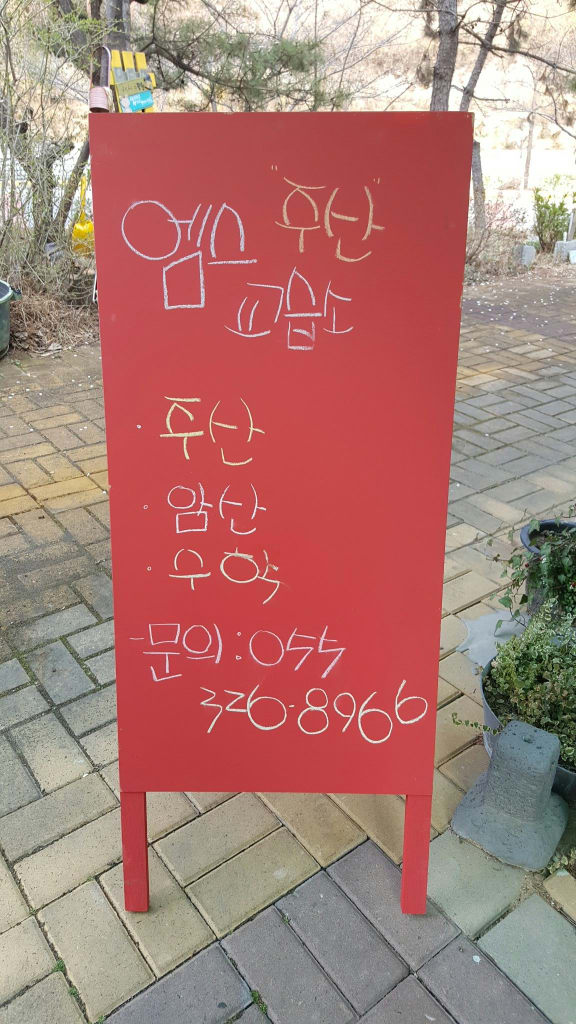 엠스 "주산"
교습소
· 주산
· 암산
· 수학
-문의 : 055
326-8966